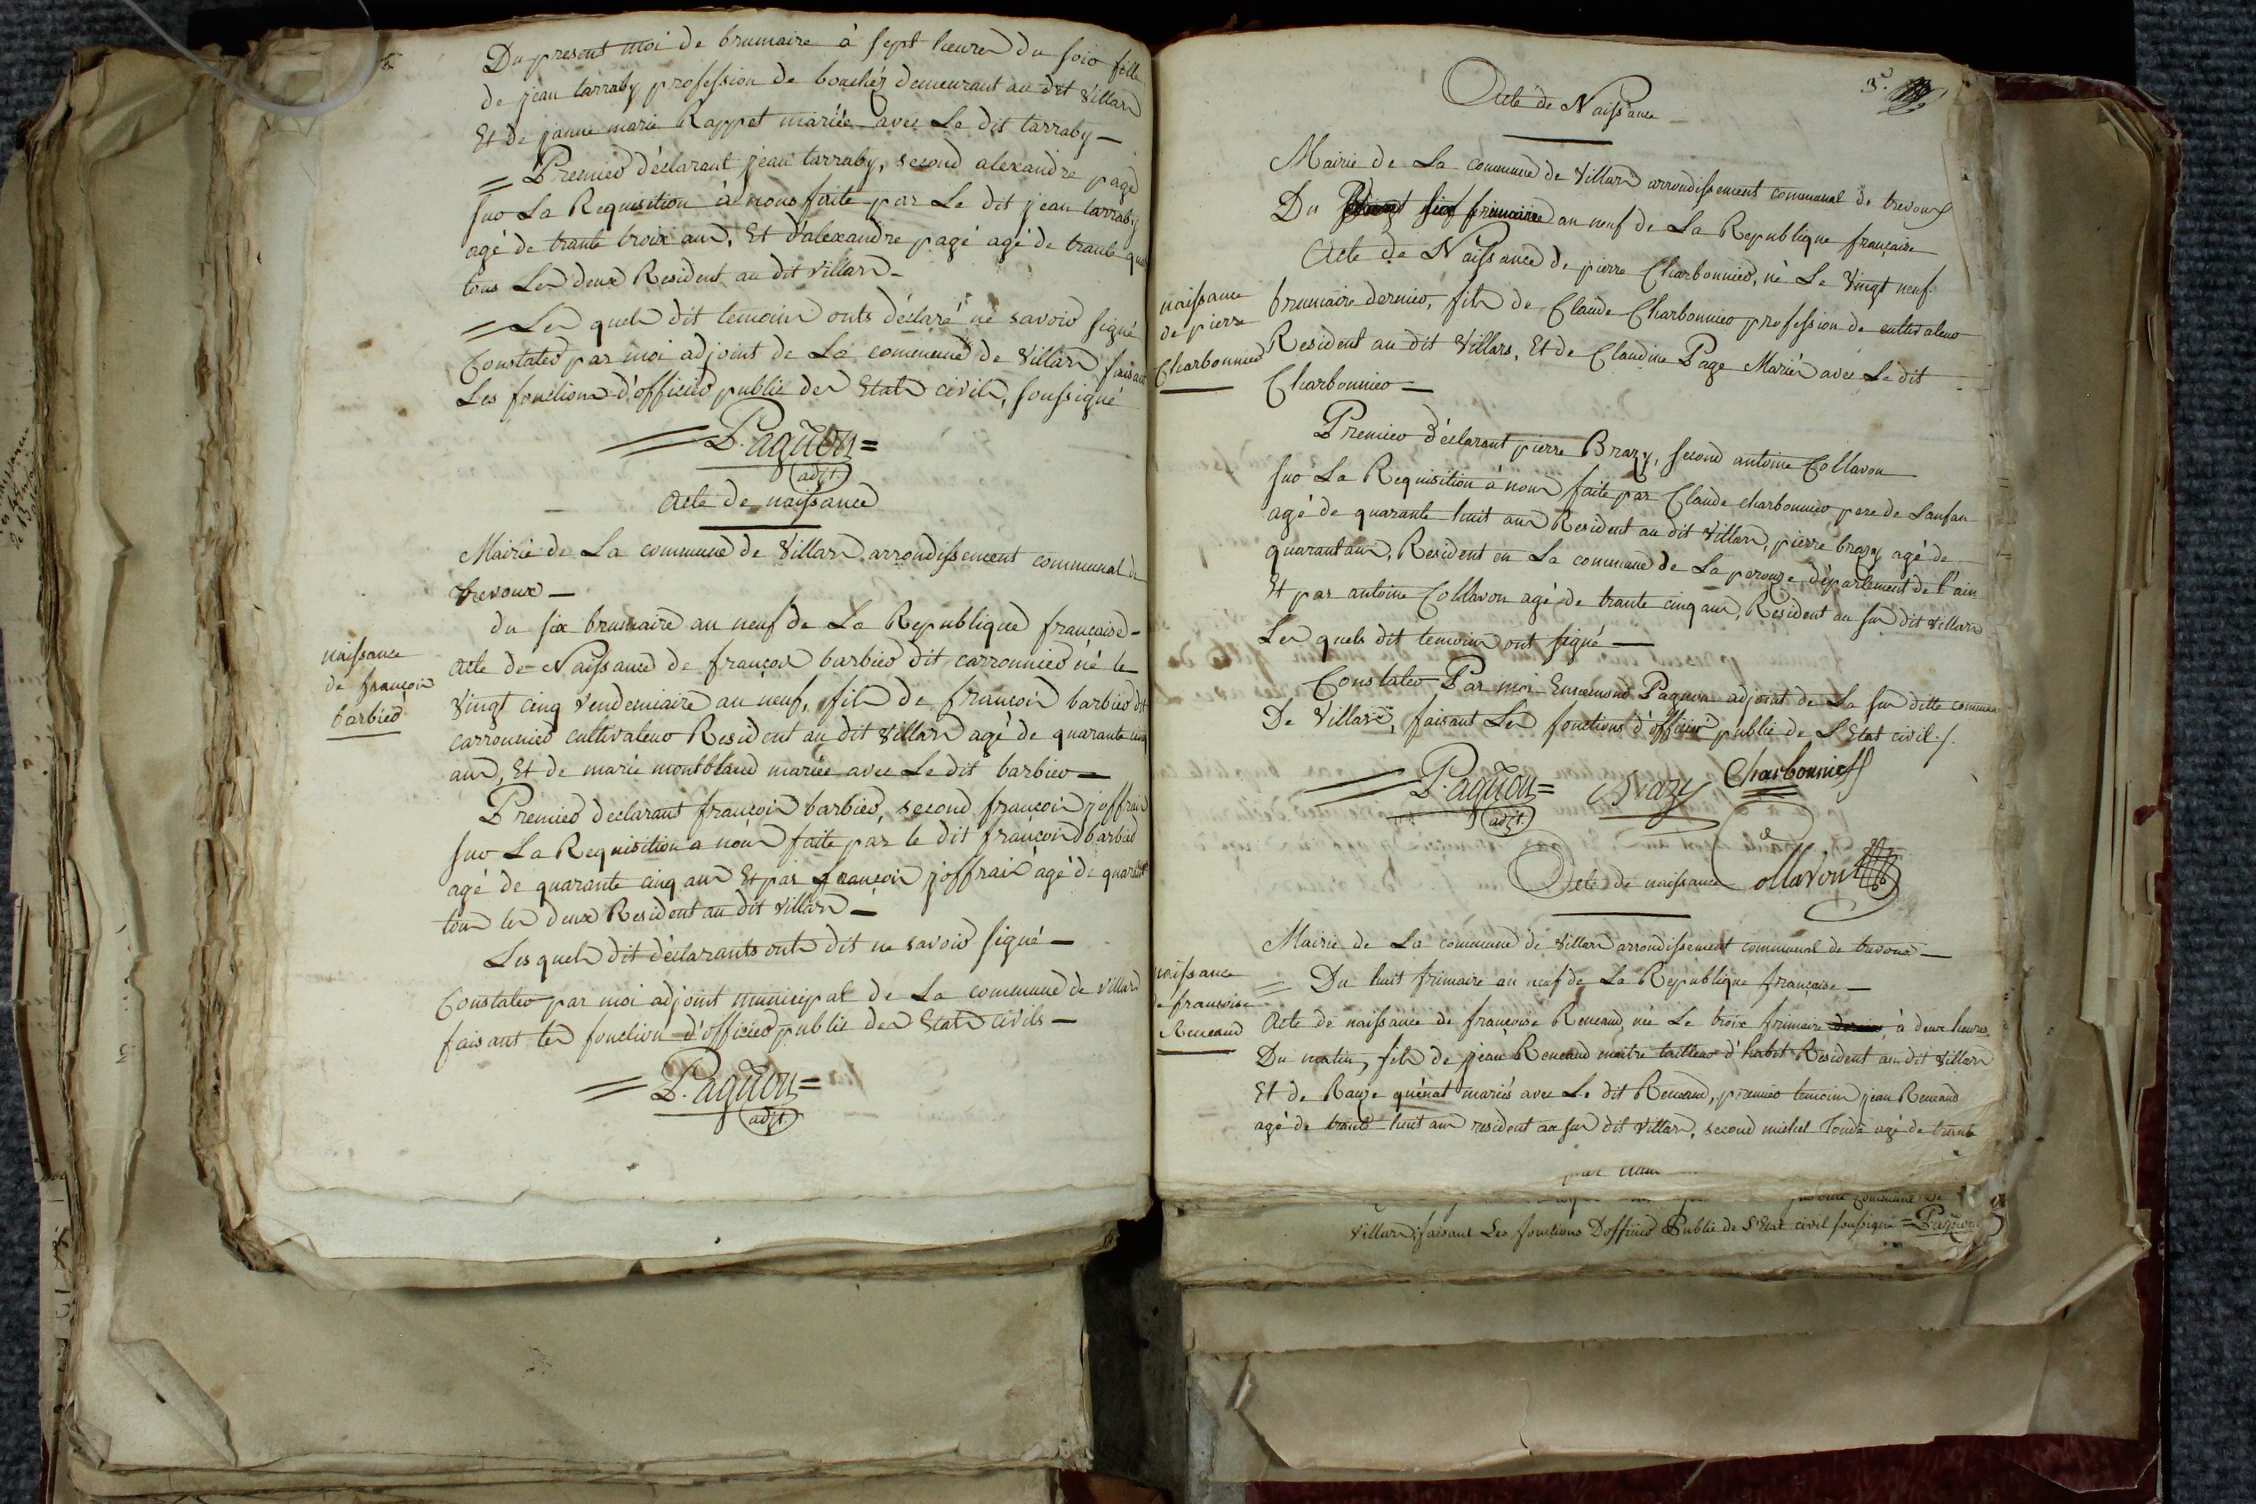 Du present moi de brumaire à sept heures du soir fille
de jean tarraby profession de boucher demeurant au dit Villars
Et de janne marie Rappet mariée avec Le dit tarraby —
= Premier déclarant jean tarraby, second alexandre page
sur La Requisition à nous faite par Le dit jean tarraby
agé de trante troix ans, Et d'alexandre pagé agé de trante
tous Les deux Resident au dit villars —
= Les quels dit temoins onts déclaré ne savoir signé
Constater par moi adjoint de La commune de Villars faisant
Les fonctions d'officier public des Etats civils, soussigné
= Pagnon =
adjt.
Acte de naissance
Mairie de La commune de Villars arrondissement communal de
trevoux —
du six brumaire an neuf de La Republique française —
naissance
de françois
barbier
acte de Naissance de françois barbier dit carronnier né le
Vingt cinq vendemiaire an neuf, fils de françois barbier dit
carronnier cultivateur Resident au dit Villars agé de quarante cinq
ans, Et de marie montbland mariée avec Le dit barbier —
Premier declarant françois barbier, second françois joffrai
sur La Requisition a nous faite par le dit françois barbier
agé de quarante cinq ans Et par françois joffrai agé de quarante
tous les deux Resident au dit villars —
Les quels dit déclarants onts dit ne savoir signé —
Constater par moi adjoint municipal de La commune de Villars
faisant les fonctions d'officier public des Etats civils —
= Pagnon =
adjt.
3.
Acte de Naissance
Mairie de La commune de Villars arrondissement communal de trevoux
Du six frimaire an neuf de La Republique française
Acte de Naissance de pierre Charbonnier, né Le Vingt neuf
naissance
de pierre
Charbonnier
brumaire dernier, fils de Claude Charbonnier profession de cultivateur
Resident au dit Villars, Et de Claudine Page Mariés avec Le dit
Charbonnier —
Premier déclarant pierre Brazy, second antoine Collavon
sur La Requisition à nous faite par Claude charbonnier pere de Lanfan
agé de quarante huit ans Resident au dit Villars, pierre brazy agé de
quarant ans, Resident en La commune de La perouze département de l'ain
Et par antoine Collavon agé de trante cinq ans, Resident au sus dit villars
Les quels dit temoins ont signé —
Constater Par moi Ennemond Pagnon adjoint de La sus ditte commune
De Villars, faisant Les fonctions d'officier public de L'Etat civil ./.
= Pagnon = Brazy Charbonnier
adjt.
Acte de naissance Collavon
Mairie de La commune de Villars arrondissement communal de trevoux —
naissance
de francoise
Reneaud
= Du huit frimaire an neuf de La Republique française —
Acte de naissance de françoise Reneaud née Le troix frimaire à deux heures
Du matin, fils de jean Reneaud maitre tailleur d'habit Resident au dit Villars
Et de Rauze quénat mariés avec Le dit Reneaud, premier temoin jean Reneaud
agé de trante huit ans resident au sus dit Villars, second michel agé de trante
commune de
Villars, faisant Les fonctions D'officier Public de L'Etat civil soussigné = Pagnon